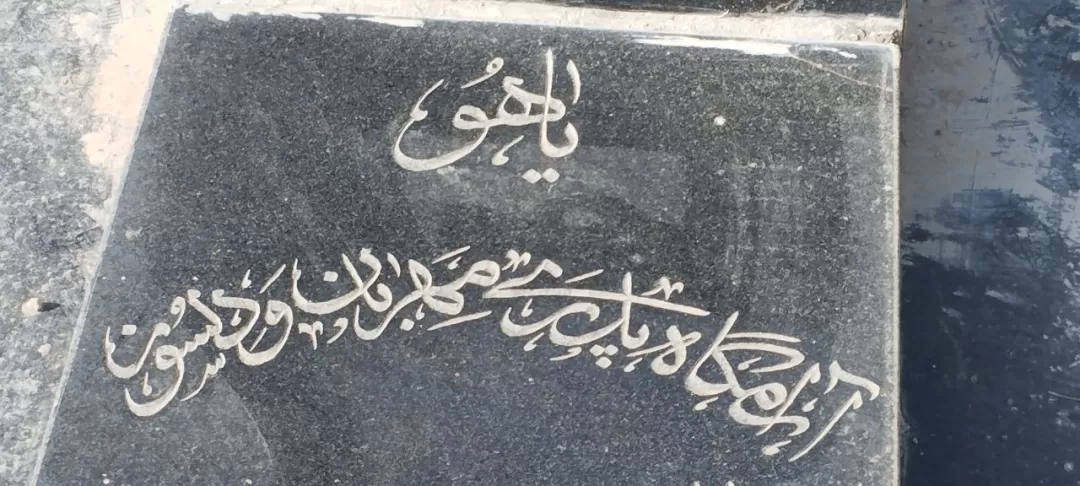 یا هو
آرامگاه پدری مهربان و دلسوز